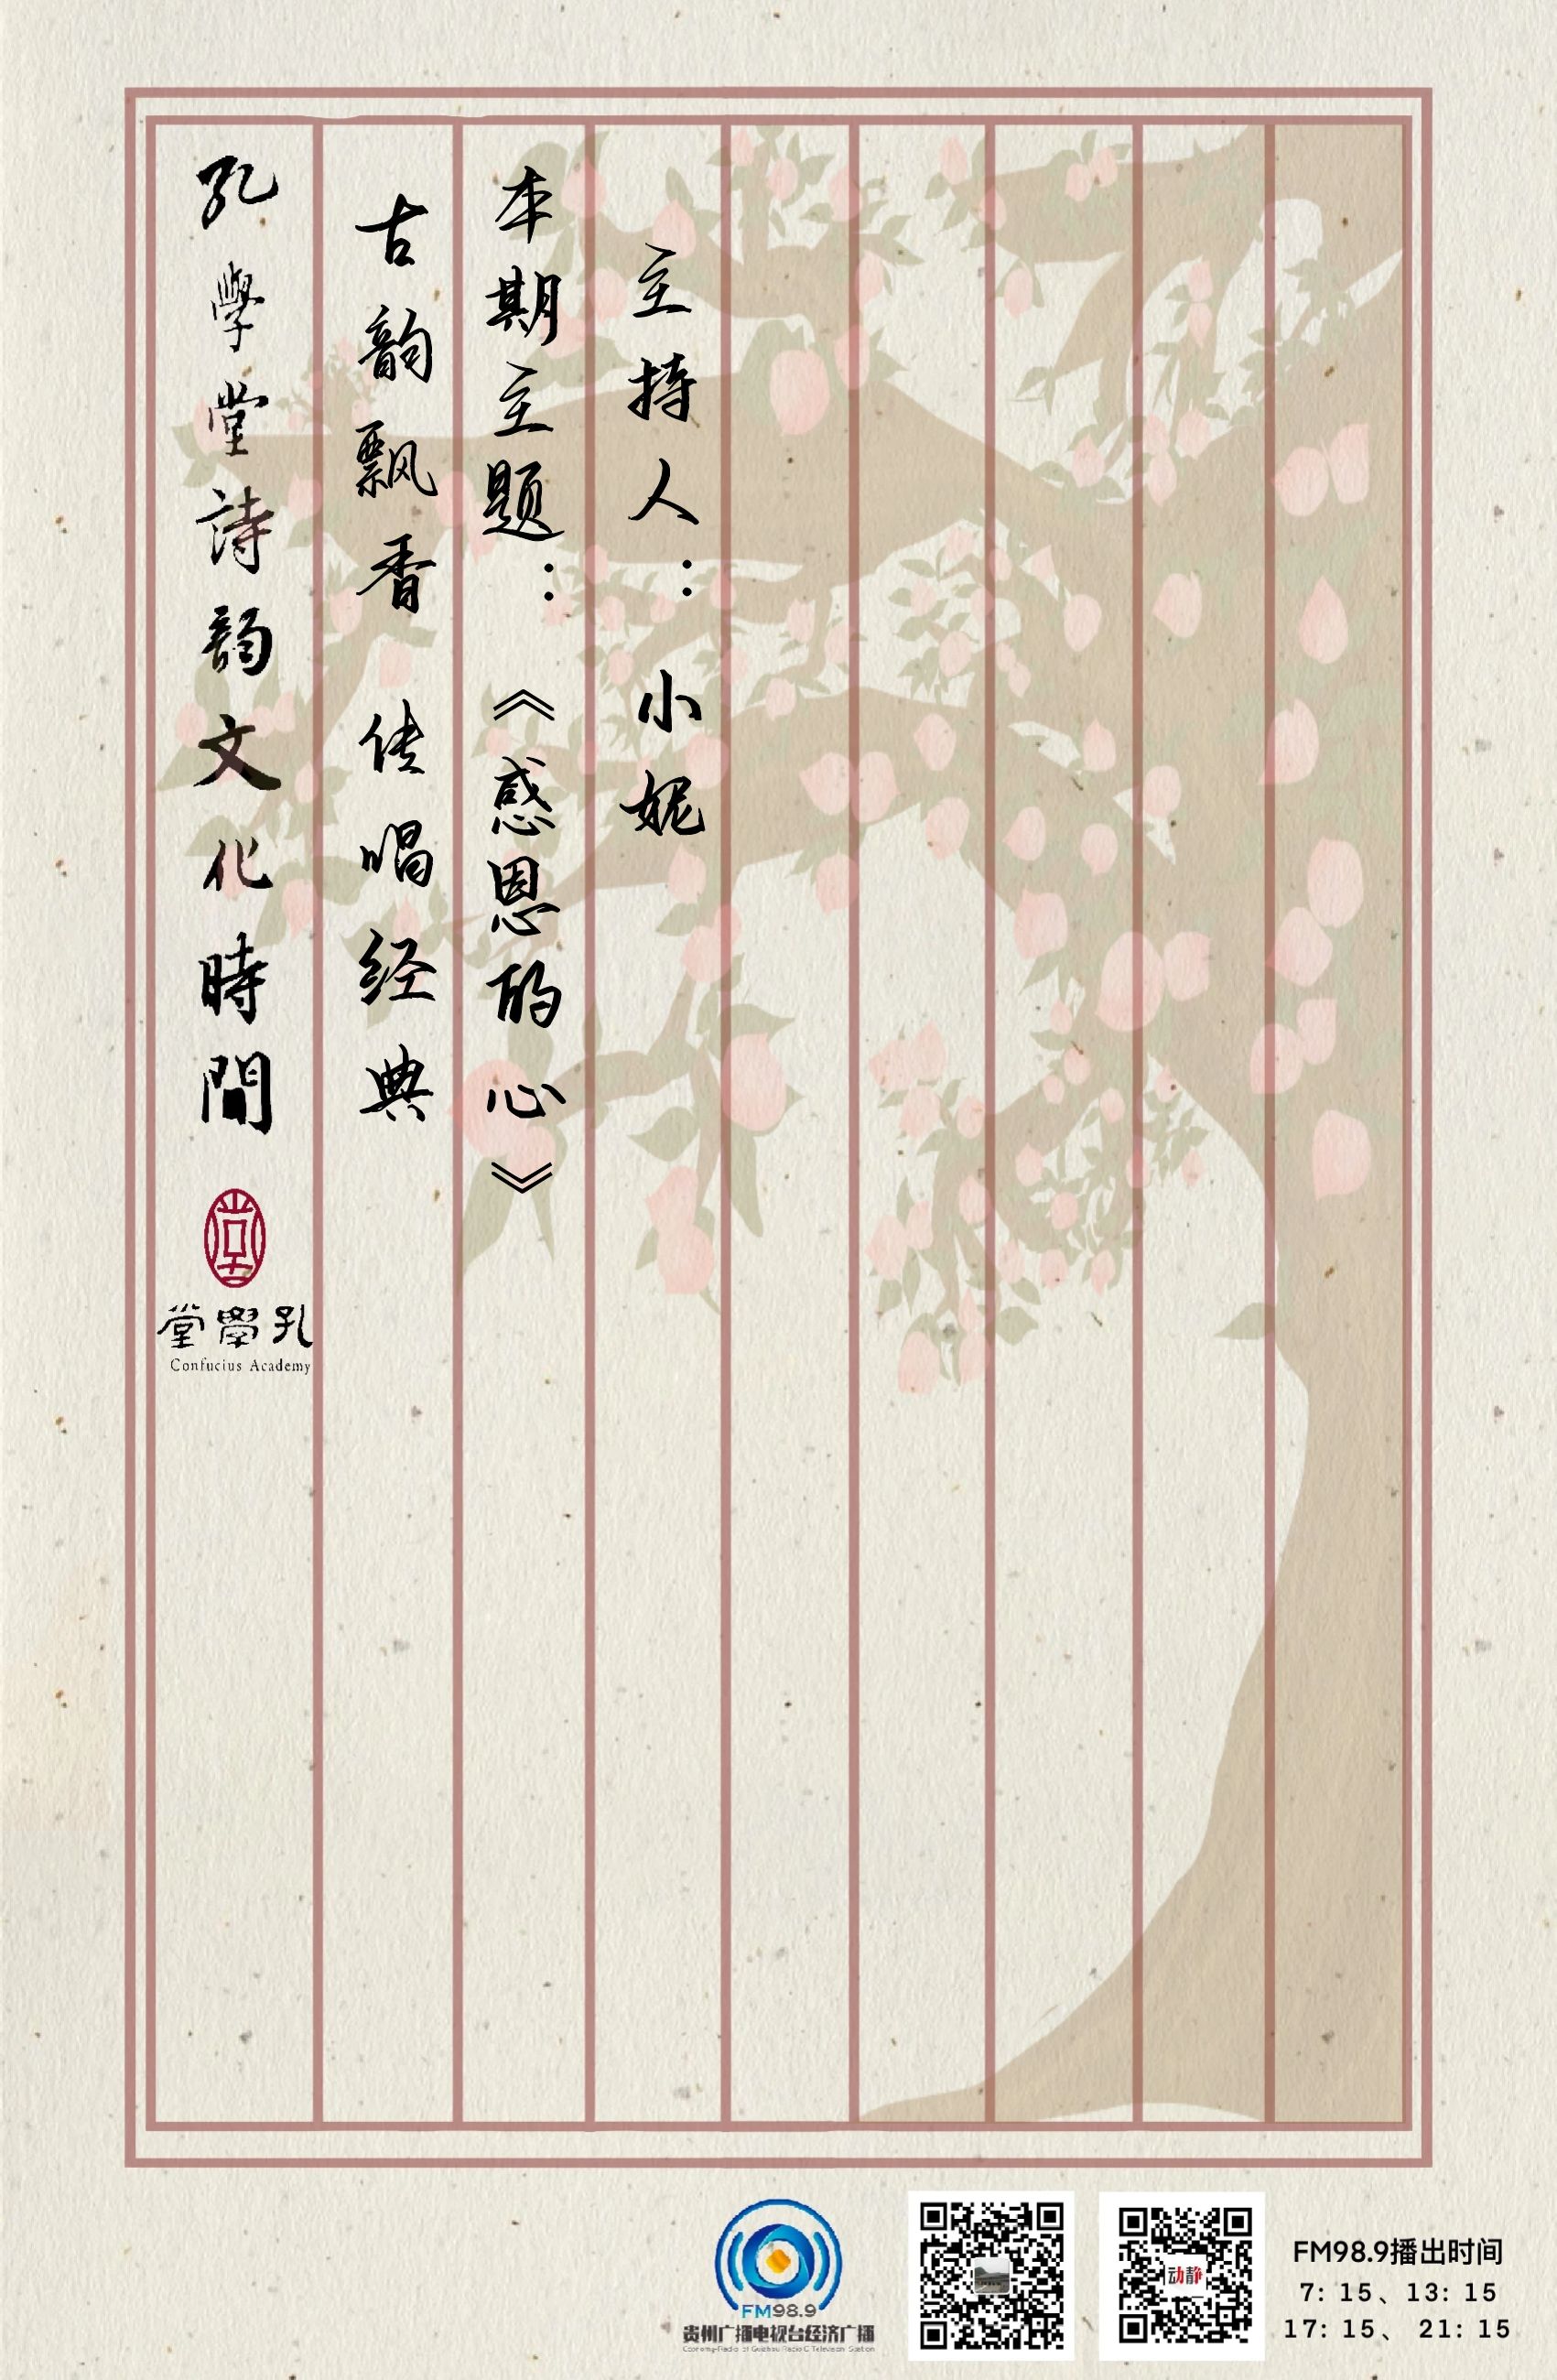 孔學堂詩韵文化時間
堂學孔
Confucius Academy
古韵飘香 传唱经典
本期主题：《感恩的心》
主持人：小妮
FM98.9
贵州广播电视台经济广播
Economy-Radio of Guizhou Radio & Television Station
动静
FM98.9播出时间
7: 15、13: 15
17: 15、 21: 15